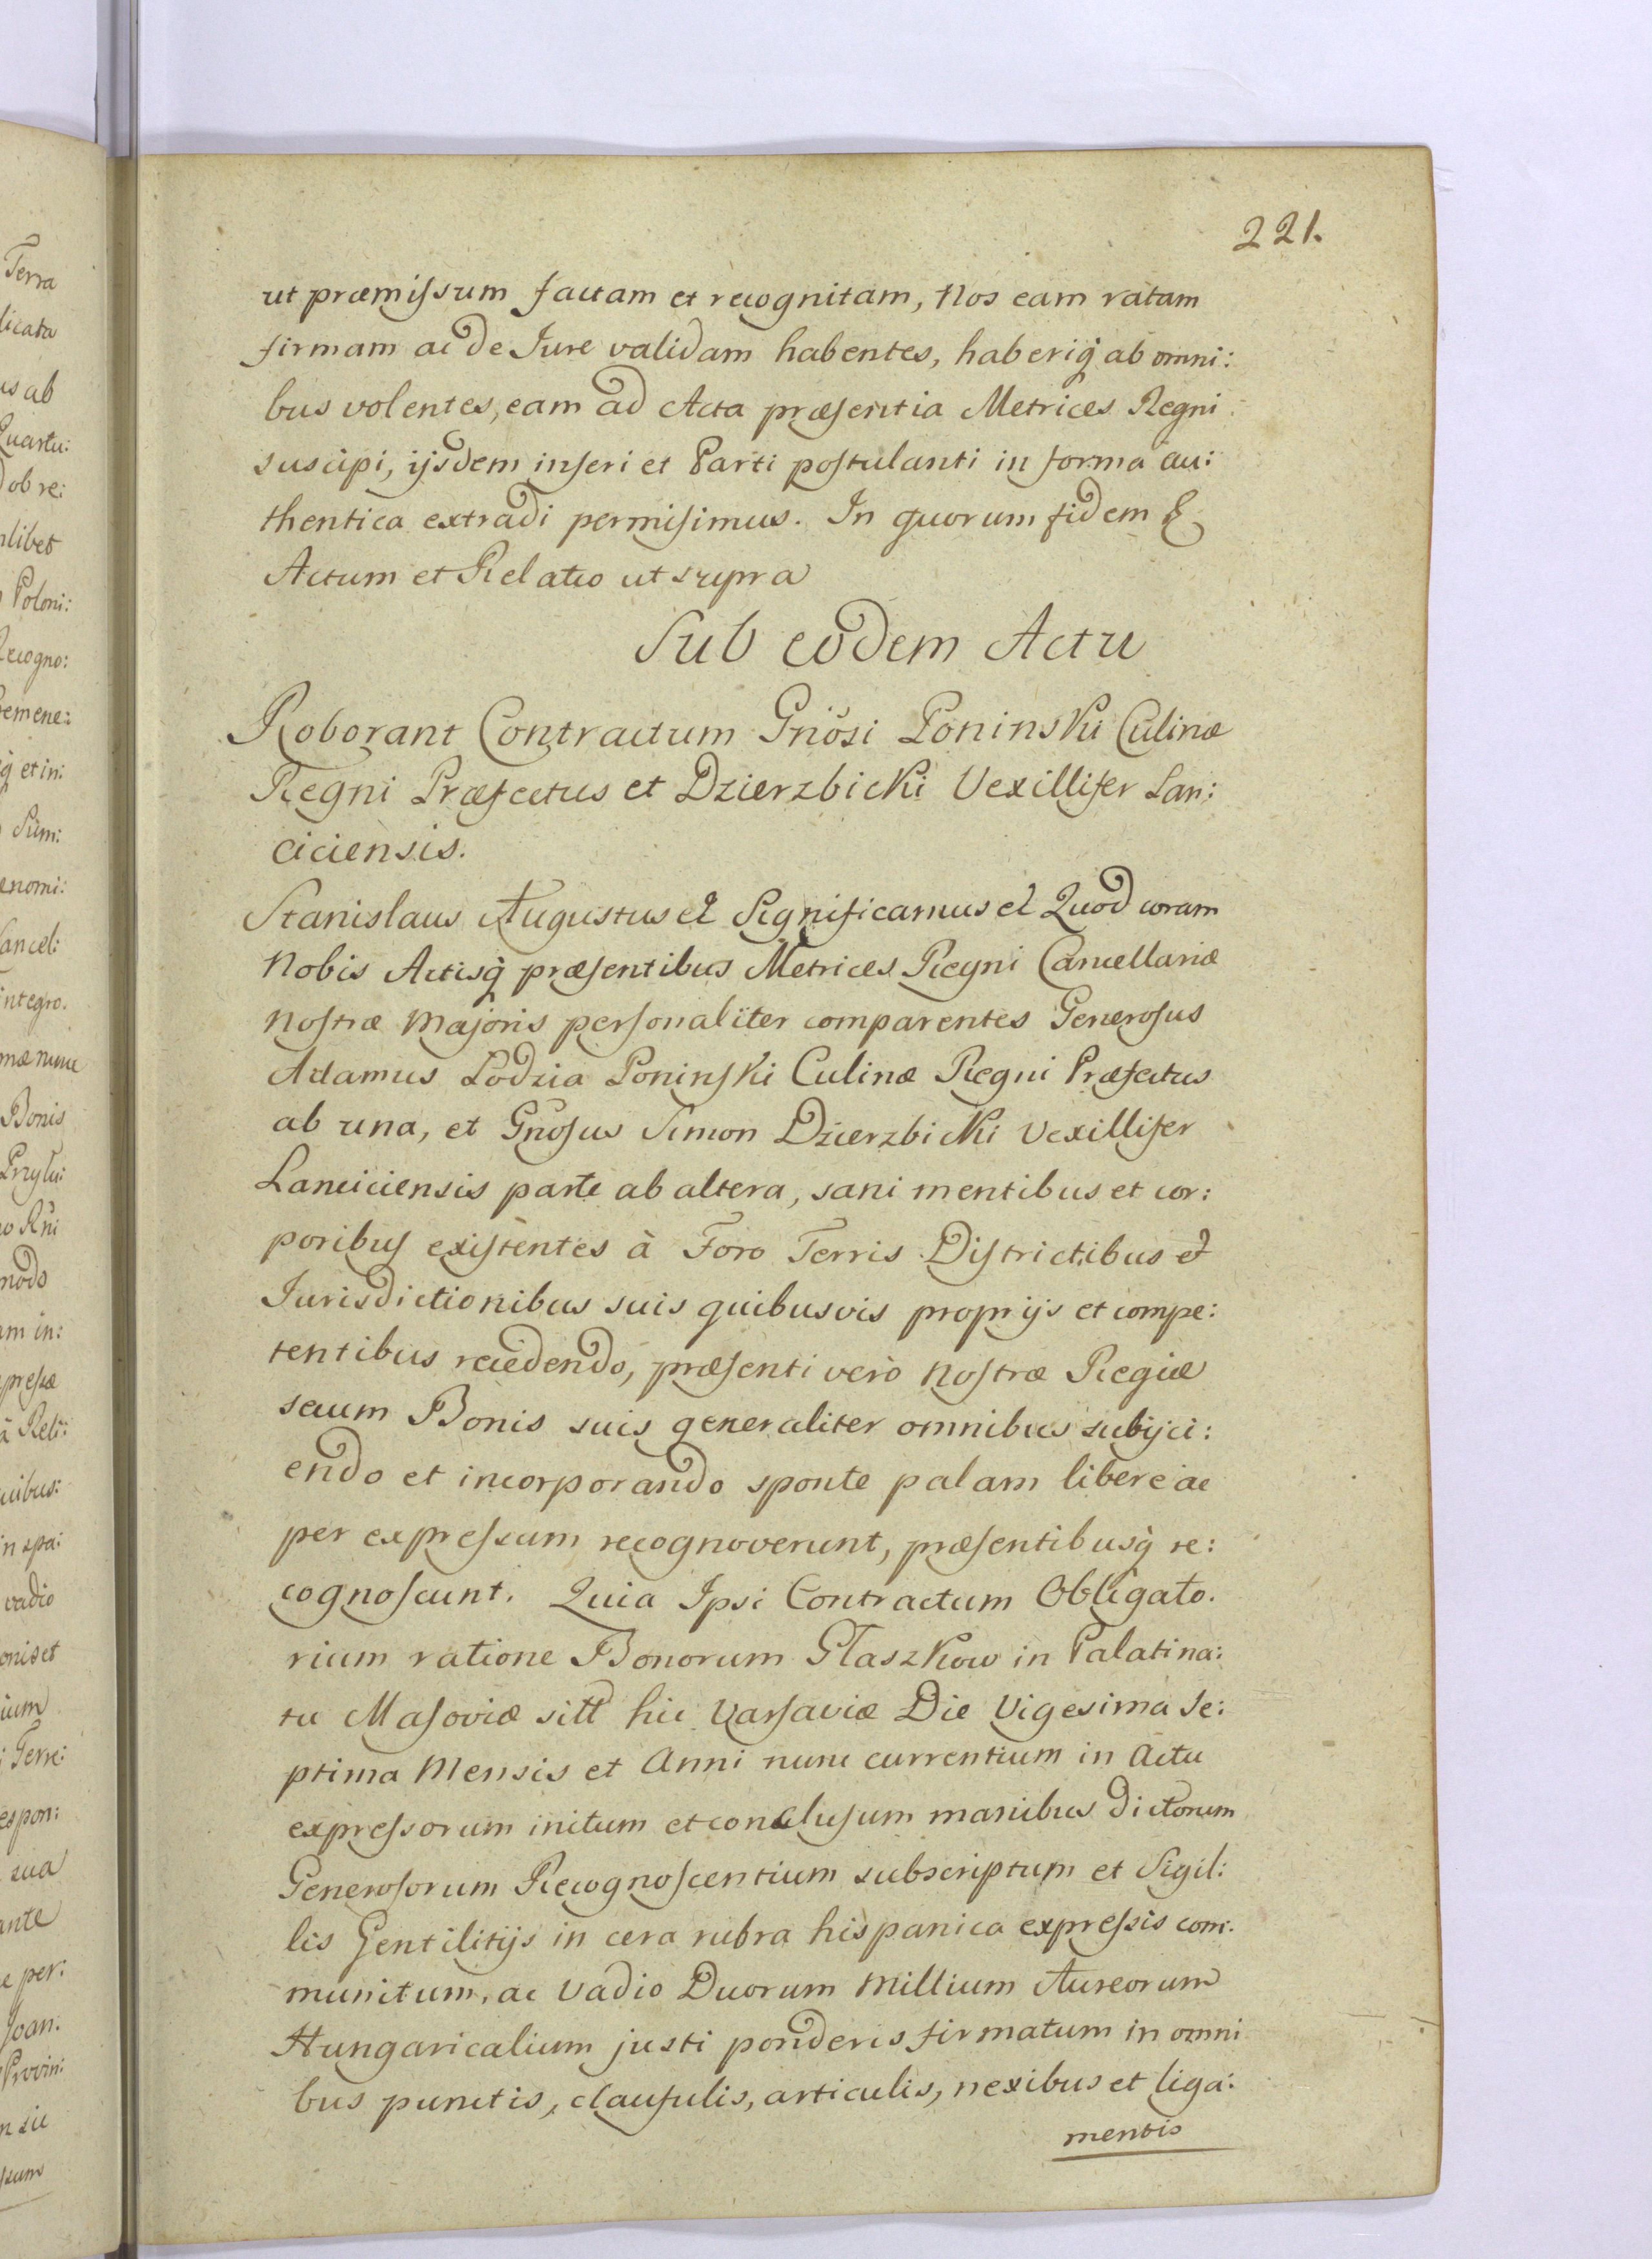 221.
ut præmissum factam et recognitam, Nos eam ratam
firmam ac de Jure validam habentes, haberiq̃ ab omni:
bus volentes, eam ad Acta præsentia Metrices Regni
suscipi, ijsdem inseri et Parti postulanti in forma au:
thentica extradi permisimus. In quorum fidem &
Actum et Relatio ut supra
Sub eodem Actu
Roborant Contractum Gñosi Poninski Culinæ
Regni Præfectus et Dzierzbicki Vexillifer Lan:
ciciensis.
Stanislaus Augustus & Significamus & Quod coram
Nobis Actisq̃ præsentibus Metrices Regni Cancellariæ
Nostræ Majoris personaliter comparentes Generosus
Adamus Lodzia Poninski Culinæ Regni Præfectus
ab una, et Gñosus Simon Dzierzbicki Vexillifer
Lanciciensis parte ab altera, sani mentibus et cor:
poribus existentes à Foro Terris Districtibus &
Jurisdictionibus suis quibusvis proprijs et compe:
tentibus recedendo, præsenti verò Nostræ Regiæ
secum Bonis suis generaliter omnibus subijci:
endo et incorporando sponte palam libere ac
per expressum recognoverunt, præsentibusq̃ re:
cognoscunt. Quia Ipsi Contractum Obligato.
rium ratione Bonorum Głaszkow in Palatina:
tu Masoviæ sitt hic Varsaviæ Die Vigesima Se:
ptima Mensis et Anni nunc currentium in Actu
expressorum initum et conclusum manibus dictorum
Generosorum Recognoscentium subscriptum et Sigil:
lis Gentilitijs in cera rubra hispanica expressis com:
munitum, ac Vadio Duorum Millium Aureorum
Hungaricalium justi ponderis firmatum in omni
bus punctis, clausulis, articulis, nexibus et liga:
mentis